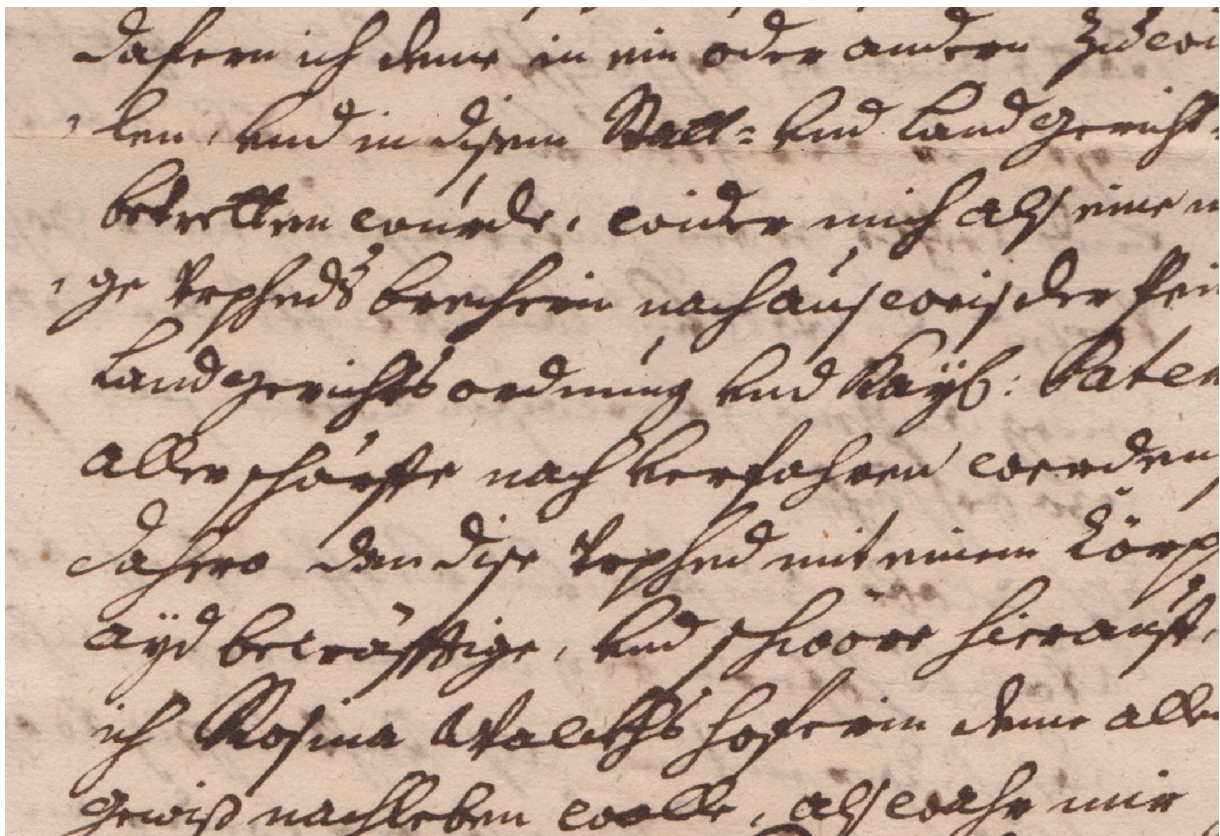 dafern ich deme in ein oder andern zuewi
len, vnd in disem Statt= vnd Landgericht
betretten wurde, wider mich alß eine m
ge Vrpheds brecherin nach außweiß der Pein
Landgerichts ordnung vnd Kayß: Paten
aller schärffe nach verfahren werden
dahero dan dise Vrphed mit einem Cörp
ayd becräfftige, vnd schwöre hierauf,
ich Rosina hoferin deme alle
gewiß nachleben wolle, alß wahr mir